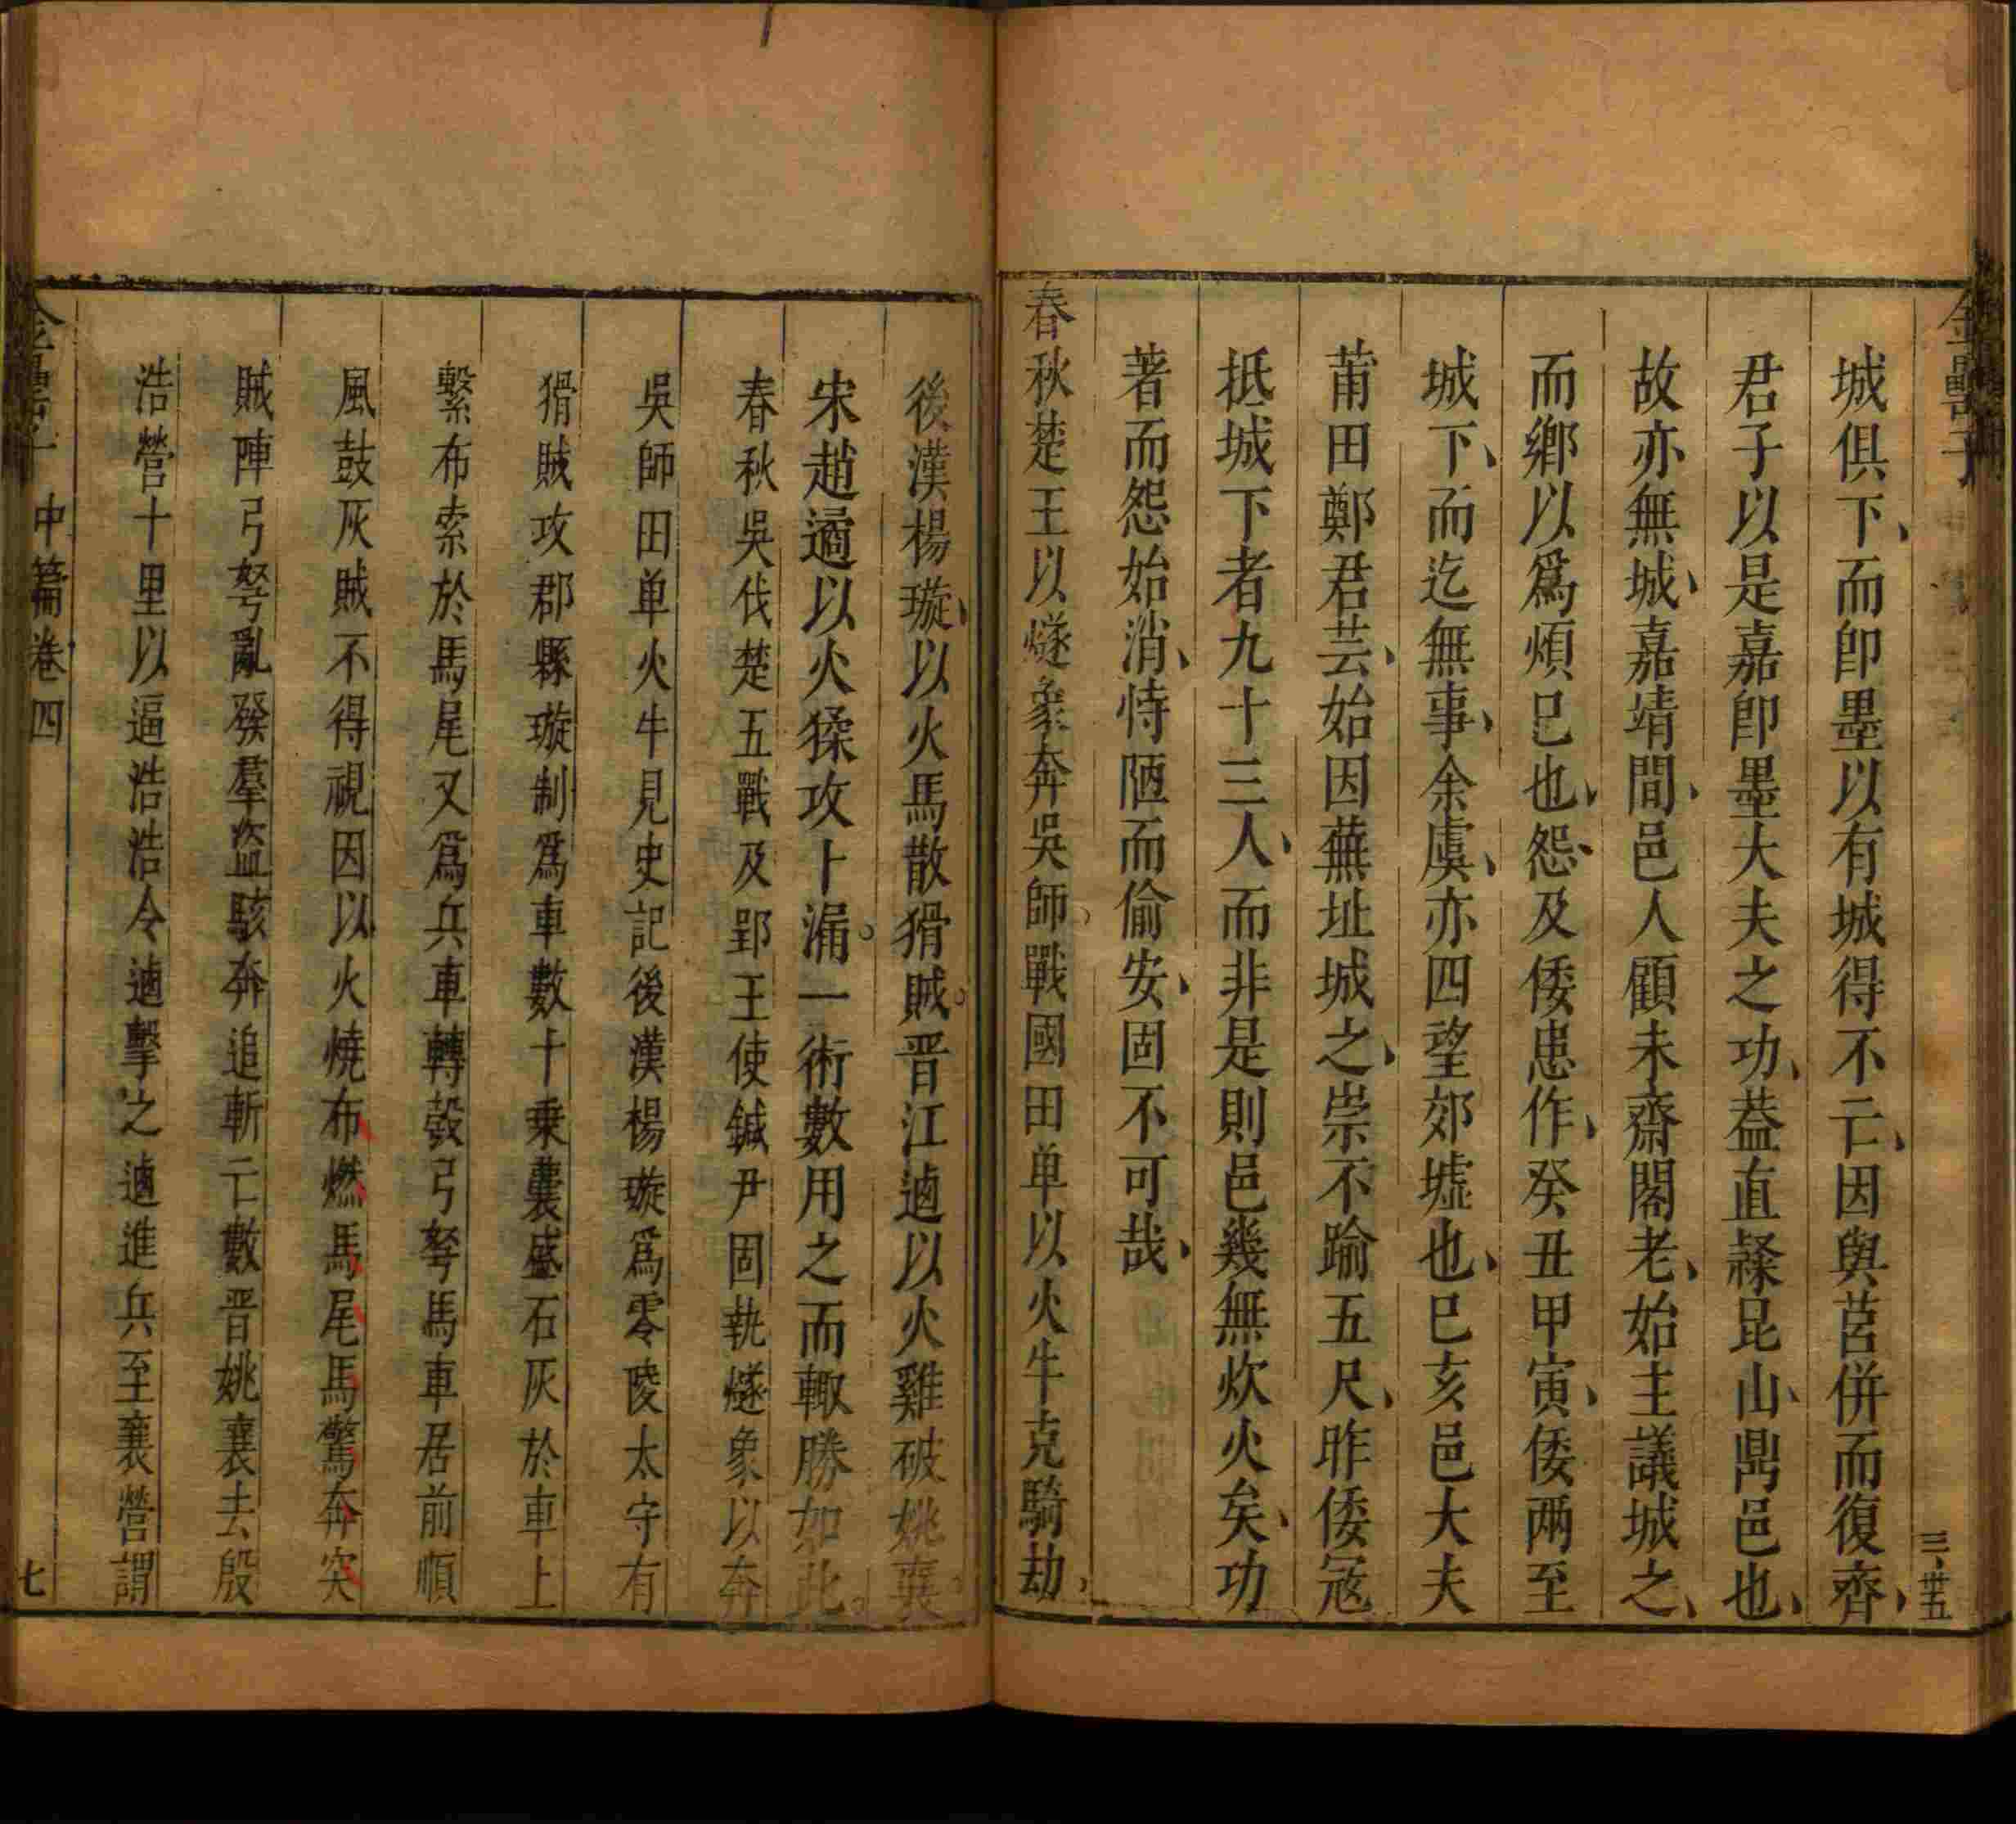 金罍子
三、卅五
城俱下、而卽墨以有城得不亡、因與莒併而復齊、
君子以是嘉卽墨大夫之功、葢直繇昆山、鼎邑也、
故亦無城、嘉靖間、邑人顧未齋閣老、始主議城之、
而鄉以爲煩已也、怨、及倭患作、癸丑甲寅、倭兩至
城下、而迄無事、余虞、亦四望郊墟也、巳亥邑大夫
莆田鄭君芸、始因蕪址城之、崇不踰五尺、昨倭冦
抵城下者九十三人、而非是則邑幾無炊火矣、功
著而怨始消、恃陋而偷安、固不可哉、
春秋楚王以燧象奔吳師戰國田单以火牛克騎劫、
後漢楊璇、以火馬散猾賊。晋江逌以火雞破姚襄。
宋趙遹以火猱攻卜漏。一術數用之而輙勝如此。
春秋吳伐楚五戰及郢王使鍼尹固執燧象以奔
吳師田单火牛見史記後漢楊璇爲零陵太守有
猾賊攻郡縣璇制爲車數十乗囊盛石灰於車上
繫布索於馬尾又爲兵車轉彀弓弩馬車居前順
風鼓灰賊不得視因以火燒布燃馬尾馬驚奔突
賊陣弓弩亂發羣盗駭奔追斬亡數晋姚襄去殷
浩營十里以逼浩浩令逌擊之逌進兵至襄營謂
金罍子 中篇卷四
七